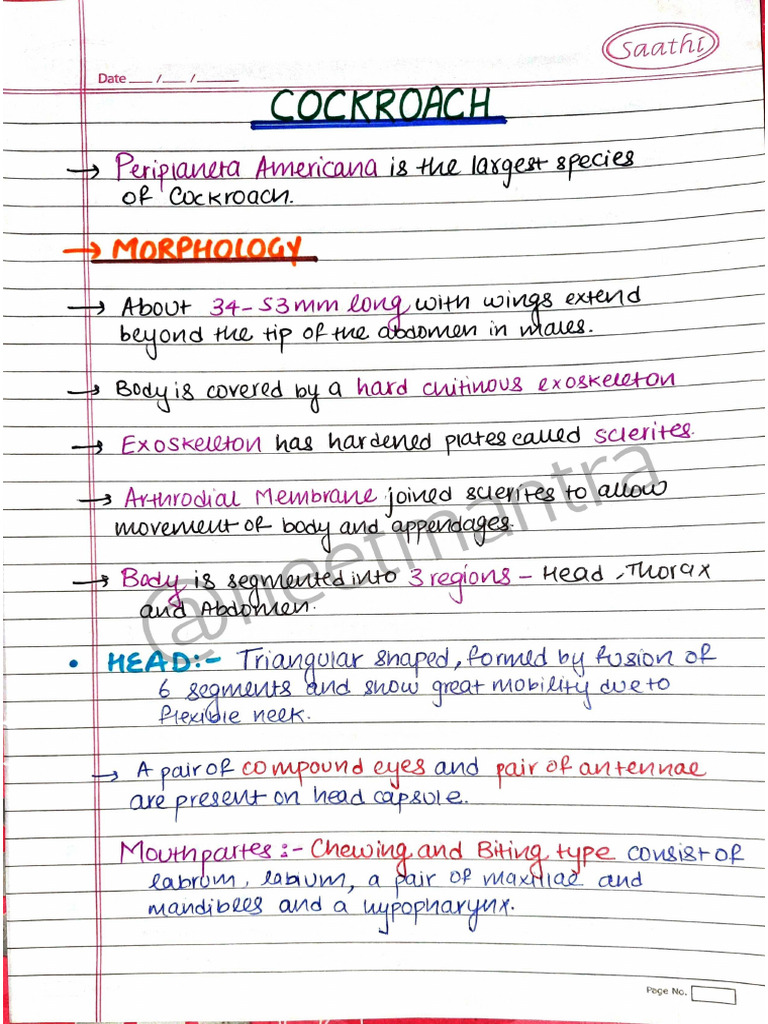 Saathi
Date ___ /___ / _____
COCKROACH
→ Periplaneta Americana is the largest species
of Cockroach.
→ MORPHOLOGY
→ About 34-53mm long with wings extend
beyond the tip of the abdomen in males.
→ Body is covered by a hard chitinous exoskeleton
→ Exoskeleton has hardened plates called sclerites.
→ Arthrodial Membrane joined sclerites to allow
movement of body and appendages.
→ Body is segmented into 3 regions - Head, Thorax
and Abdomen.
• HEAD:- Triangular shaped, formed by fusion of
6 segments and show great mobility due to
flexible neck.
→ A pair of compound eyes and pair of antennae
are present on head capsule.
Mouthpartes:- Chewing and Biting type consist of
labrum, labium, a pair of maxillae and
mandibles and a hypopharynx.
@neetmantra
Page No.